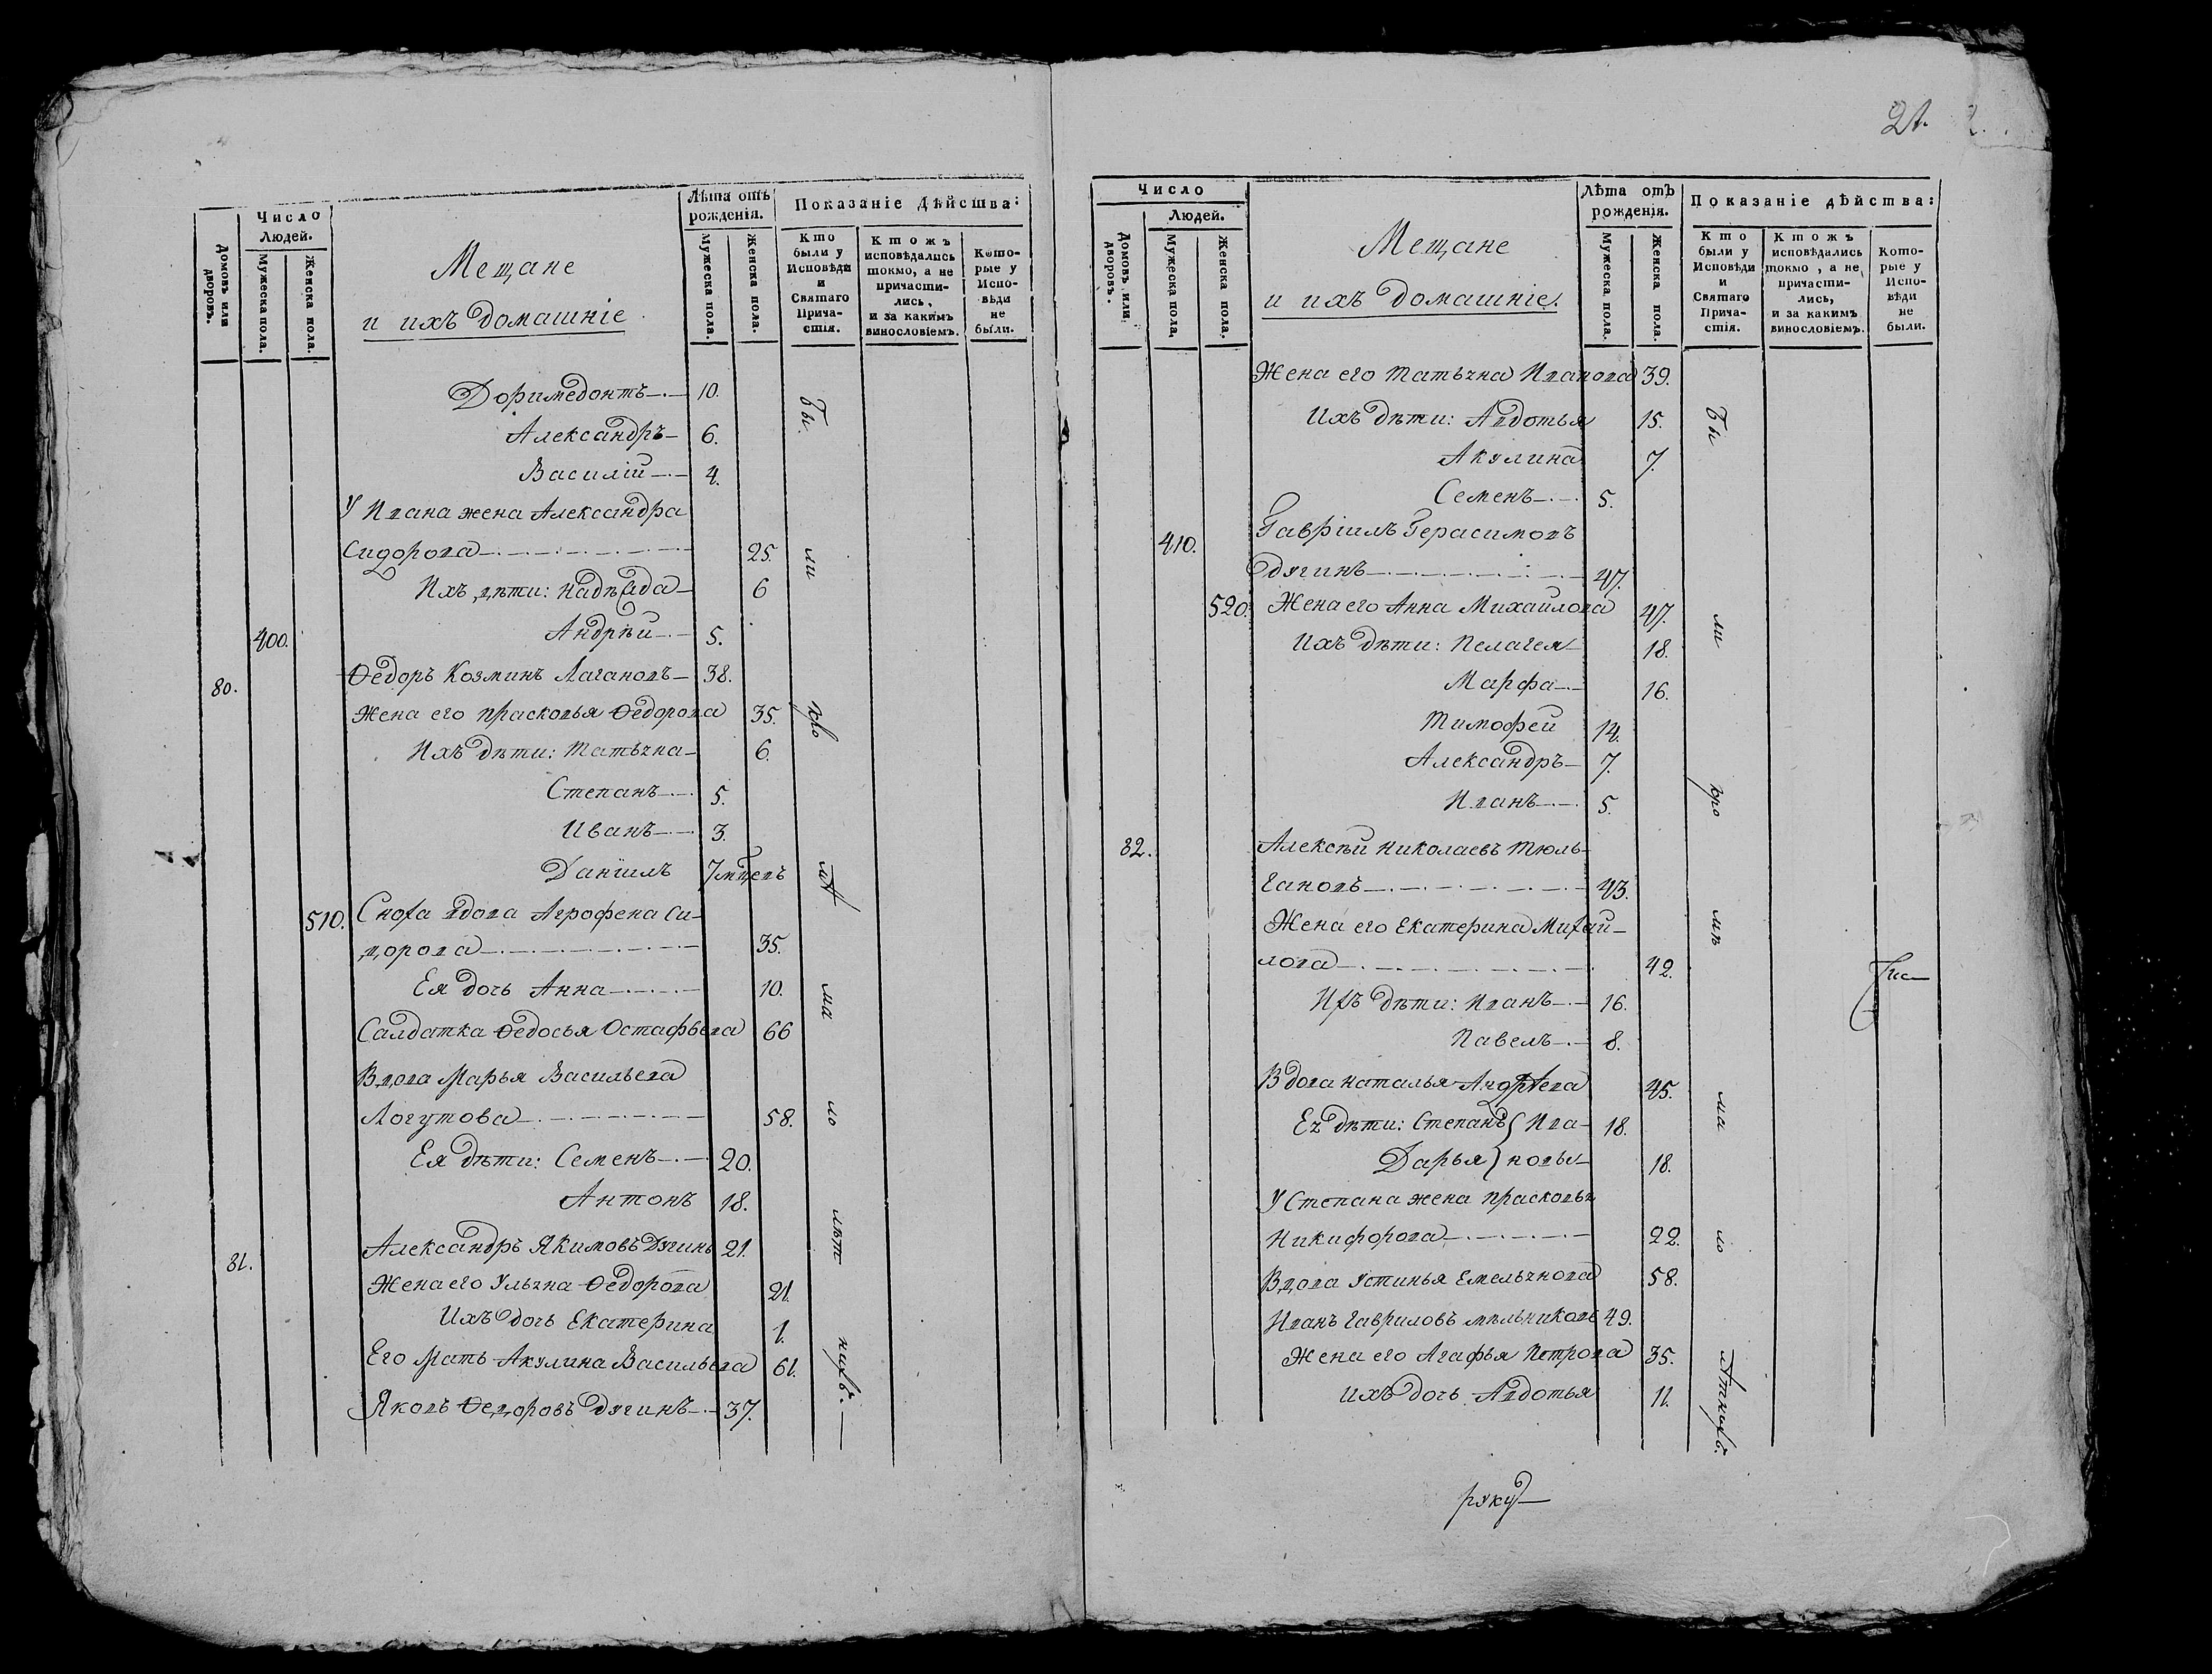 21.
Число
Людей.
Домовъ или дворовъ.
Мужеска пола.
Женска пола.
Мещане
и ихъ домашніе
Лѣта отъ
рожденія.
Мужеска пола.
Женска пола.
Показаніе дѣйства:
Кто
были у
Исповѣди
и
Святаго
Прича-
стія.
Ктожъ
исповѣдались
токмо, а не
причасти-
лись,
и за какимъ
винословіемъ.
Кото-
рые у
Испо-
вѣди
не
были.
Доримедонтъ 10.
Александръ 6.
Василій 4.
У Ивана жена Александра
Сидорова 25.
Ихъ дѣти: Надѣжда 6
400. Андрѣй 5.
80. Ѳедоръ Козминъ Лагановъ 38.
Жена его Прасковья Ѳедорова 35.
Ихъ дѣти: Татьяна 6.
Степанъ 5.
Иванъ 3.
Даніилъ 7 мцевъ
510. Сноха вдова Агрофена Си-
дорова 35.
Ея дочь Анна 10.
Салдатка Ѳедосья Остафьева 66
Вдова Марья Васильева
Логутова 58.
Ея дѣти: Семенъ 20.
Антонъ 18.
81. Александръ Якимовъ Дугинъ 21.
Жена его Ульяна Ѳедорова 21.
Ихъ дочь Екатерина 1.
Его Мать Акулина Васильева 61.
Яковъ Ѳедоровъ Дугинъ 37.
Бы
ли
ма
ло
лѣт
нихъ.
Число
Людей.
Домовъ или дворовъ.
Мужеска пола.
Женска пола.
Мещане
и ихъ домашніе.
Лѣта отъ
рожденія.
Мужеска пола.
Женска пола.
Показаніе дѣйства:
Кто
были у
Исповѣди
и
Святаго
Прича-
стія.
Ктожъ
исповѣдались
токмо, а не
причасти-
лись,
и за какимъ
винословіемъ.
Кото-
рые у
Испо-
вѣди
не
были.
Жена его Татьяна Иванова 39.
Ихъ дѣти: Авдотья 15.
Акулина 7.
Семенъ 5.
410. Гавріилъ Герасимовъ
Дугинъ 47.
520. Жена его Анна Михаилова 47.
Ихъ дѣти: Пелагея 18.
Марфа 16.
Тимофей 14.
Александръ 7.
Иванъ 5.
82. Алексѣй Николаевъ Тюль-
гановъ 43.
Жена его Екатерина Михай-
лова 42.
Ихъ дѣти: Иванъ 16.
Павелъ 8.
Вдова Наталья Андрѣева 45.
Ея дѣти: Степанъ } Ива- 18.
Дарья } новы 18.
У Степана жена Прасковья
Никифорова 22.
Вдова Устинья Емельянова 58.
Иванъ Гавриловъ Мѣльниковъ 49.
Жена его Агафья Петрова 35.
Ихъ дочь Авдотья 11.
Бы
ли
ма
ло
руку